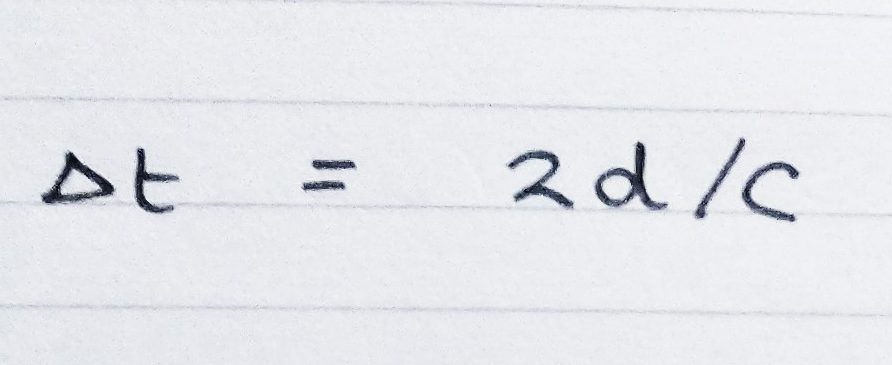 Δt = 2d/c